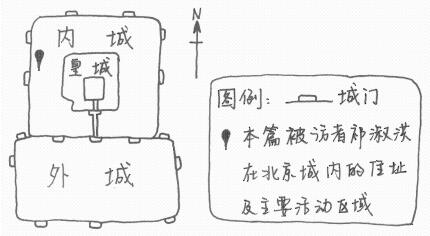 内城
皇城
外城
N
图例： 城门
本篇被访者祁淑洪
在北京城内的住址
及主要活动区域